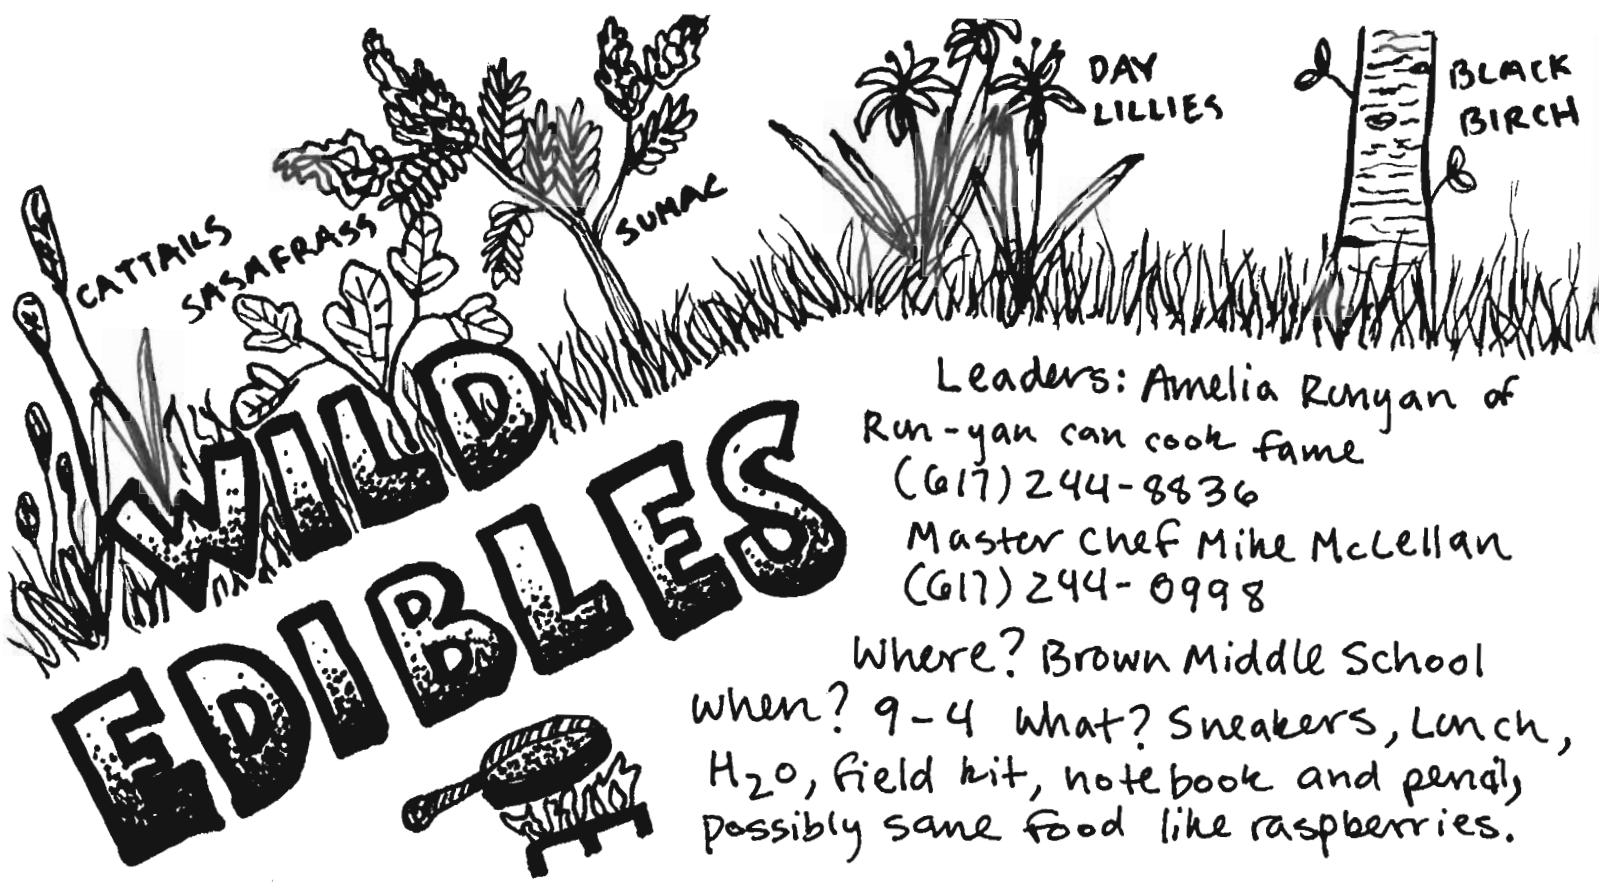 CATTAILS
SASAFRASS
SUMAC
DAY
LILLIES
BLACK
BIRCH
WILD
EDIBLES
Leaders: Amelia Runyan of
Run-yan can cook fame
(617) 244-8836
Master Chef Mike McLellan
(617) 244-0998
Where? Brown Middle School
When? 9-4 What? Sneakers, Lunch,
H2O, field kit, notebook and pencil,
possibly some food like raspberries.